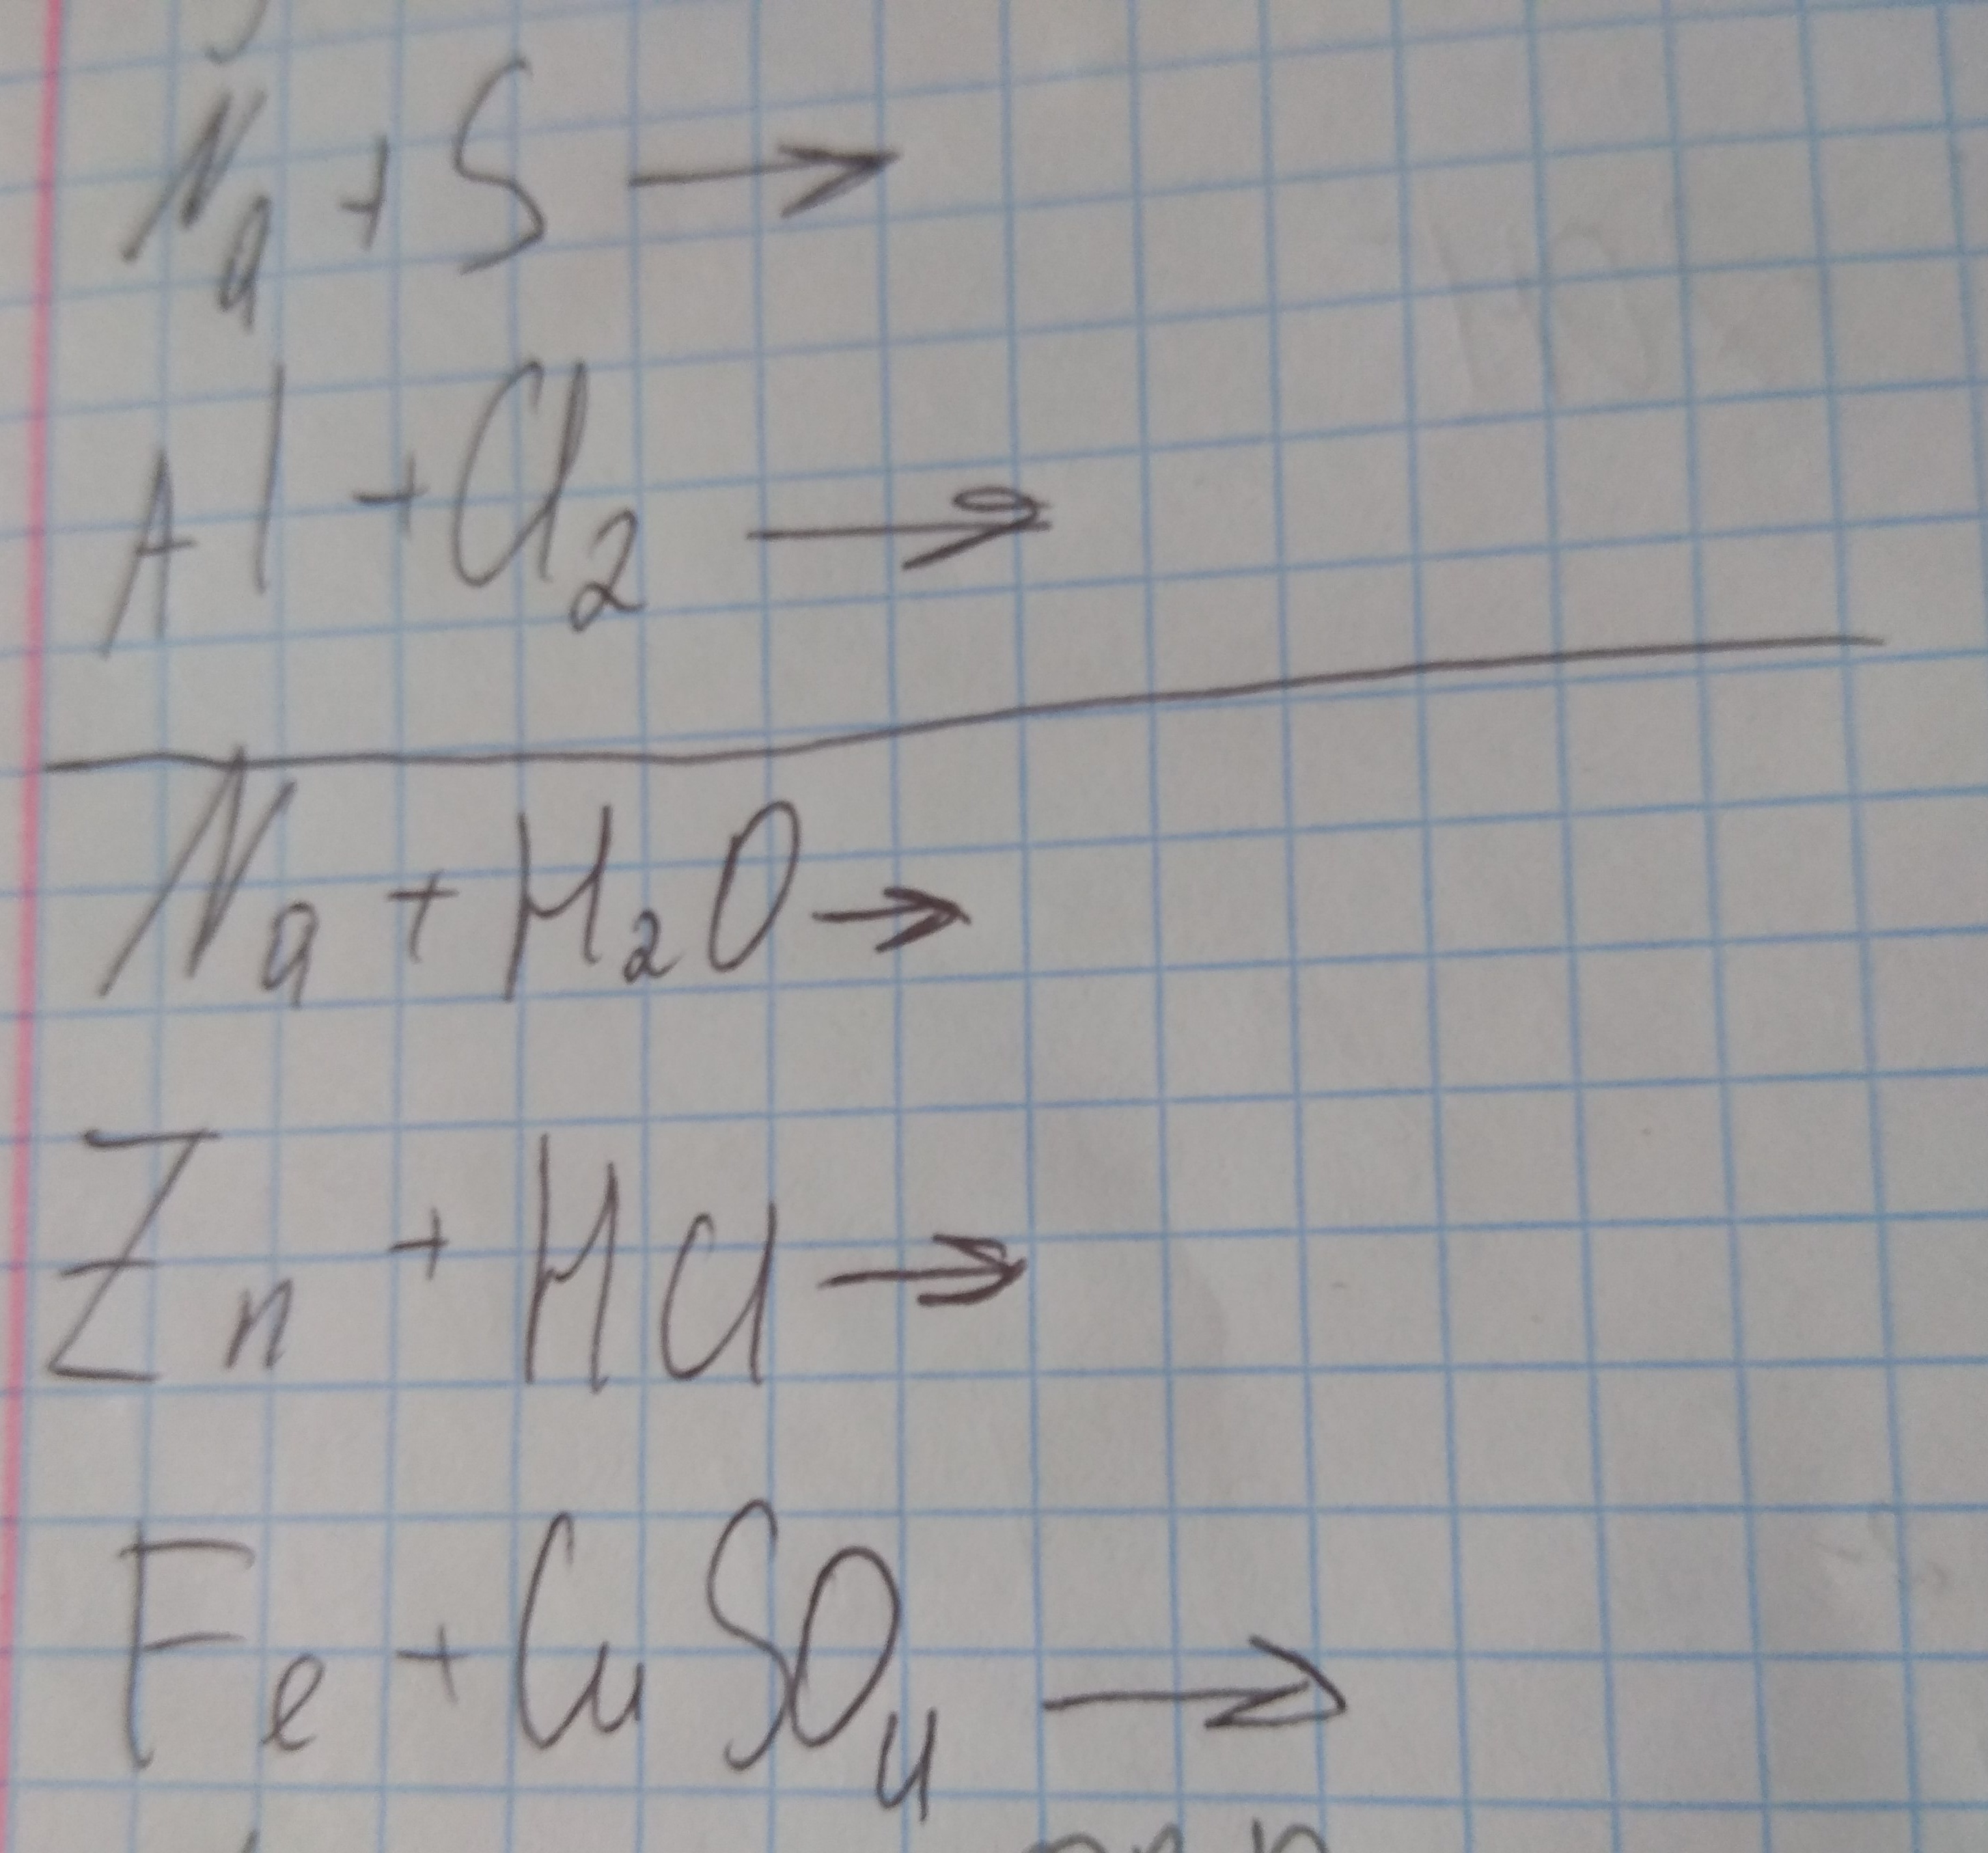 Na + S →
Al + Cl₂ →
Na + H₂O →
Zn + HCl →
Fe + CuSO₄ →